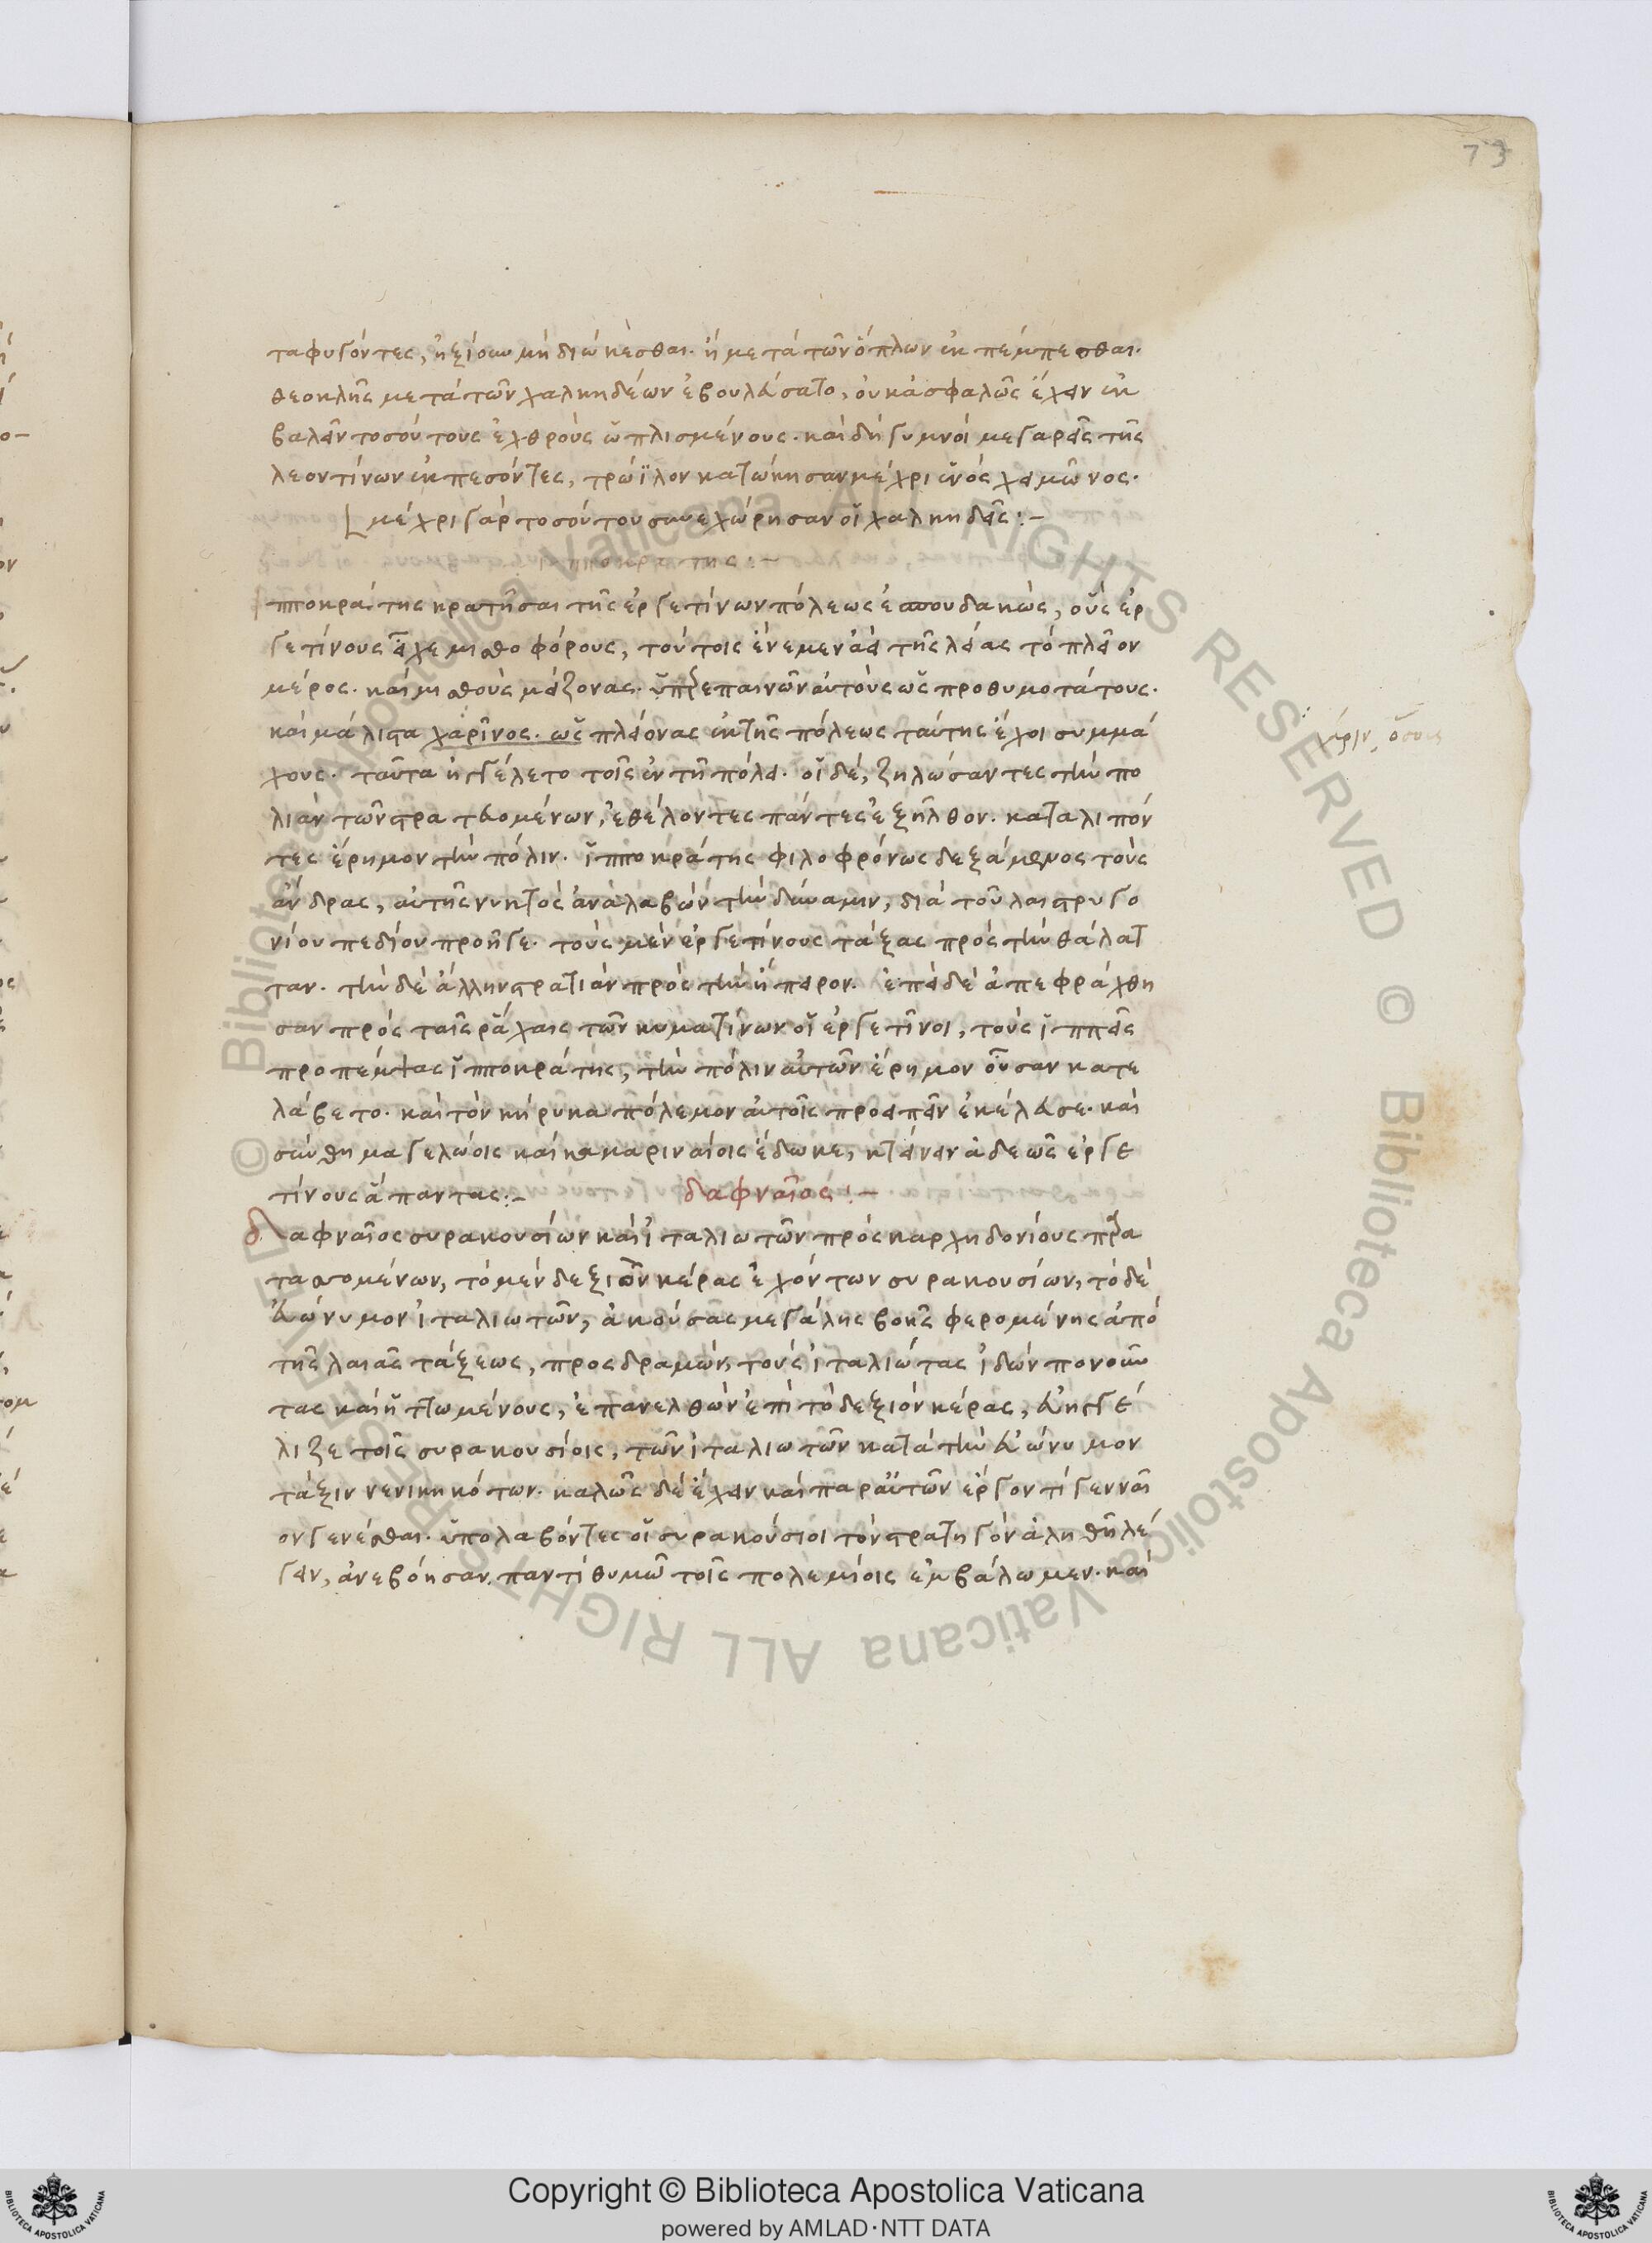 73
ταφυγόντες, ἠξίουν μὴ διώκεσθαι. ἢ μετὰ τῶν ὅπλων ἐκπέμπεσθαι.
θεοκλῆς μετὰ τῶν χαλκηδέων ἐβουλεύσατο, οὐκ ἀσφαλῶς ἔχειν ἐκ
βαλεῖν τοσούτους ἐχθροὺς ὡπλισμένους. καὶ δὴ γυμνοὶ μεγαρεῖς τῆς
λεοντίνων ἐκπεσόντες, τρώϊλον κατώκησαν μέχρι ἑνὸς χειμῶνος.
μέχρι γὰρ τοσούτου συνεχώρησαν οἱ χαλκηδεῖς:-
ἱπποκράτης:-
ἱπποκράτης κρατῆσαι τῆς ἐργετίνων πόλεως ἐσπουδακὼς, οὓς ἐρ
γετίνους εἶχε μισθοφόρους, τούτοις ἔνεμεν ἀεὶ τῆς λείας τὸ πλεῖον
μέρος. καὶ μισθοὺς μείζονας. ὑπερεπαινῶν αὐτοὺς ὡς προθυμοτάτους.
καὶ μάλιστα χαρῖνος. ὡς πλείονας ἐκ τῆς πόλεως ταύτης ἔχοι συμμά
χάριν, ὅπως
χους. ταῦτα ἠγγέλετο τοῖς ἐν τῆ πόλει. οἱ δὲ, ζηλώσαντες τὴν πο
λιὰν τῶν στρατευομένων, ἐθέλοντες πάντες ἐξῆλθον. καταλιπόν
τες ἔρημον τὴν πόλιν. ἱπποκράτης φιλοφρόνως δεξάμενος τοὺς
ἄνδρας, αὐτῆς νυκτὸς ἀναλαβὼν τὴν δύναμιν, διὰ τοῦ λαιστρυγο
νίου πεδίου προῆγε. τοὺς μὲν ἐργετίνους τάξας πρὸς τὴν θάλατ
ταν. τὴν δὲ ἄλλην στρατιὰν πρὸς τὴν ἤπειρον. ἐπεὶ δὲ ἀπεφράχθη
σαν πρὸς ταῖς ῥάχαις τῶν κυματίνων οἱ ἐργετῖνοι, τοὺς ἱππεῖς
προπέμψας ἱπποκράτης, τὴν πόλιν αὐτῶν ἔρημον οὖσαν κατε
λάβετο. καὶ τὸν κήρυκα πόλεμον αὐτοῖς προειπεῖν ἐκέλευσε. καὶ
σύνθημα γελώοις καὶ καμαριναίοις ἔδωκε, κτείνειν ἀδεῶς ἐργε
τίνους ἅπαντας:- δαφναῖος:-
δαφναῖος συρακουσίων καὶ ἰταλιωτῶν πρὸς καρχηδονίους παρα
τασσομένων, τὸ μὲν δεξιὸν κέρας ἐχόντων συρακουσίων, τὸ δὲ
εὐώνυμον ἰταλιωτῶν, ἀκούσας μεγάλης βοῆς φερομένης ἀπὸ
τῆς λαιᾶς τάξεως, προσδραμὼν, τοὺς ἰταλιώτας ἰδὼν πονοῦν
τας καὶ ἡττωμένους, ἐπανελθὼν ἐπὶ τὸ δεξιὸν κέρας, εὐηγγέ
λιζε τοῖς συρακουσίοις, τῶν ἰταλιωτῶν κατὰ τὴν εὐώνυμον
τάξιν νενικηκότων. καλῶς δὲ ἔχειν καὶ παρ' αὑτῶν ἔργον τὶ γενναῖ
ον γενέσθαι. ὑπολαβόντες οἱ συρακούσιοι τὸν στρατηγὸν ἀληθῆ λέ
γειν, ἀνεβόησαν. παντὶ θυμῶ τοῖς πολεμίοις ἐμβάλωμεν. καὶ
Copyright © Biblioteca Apostolica Vaticana
powered by AMLAD·NTT DATA